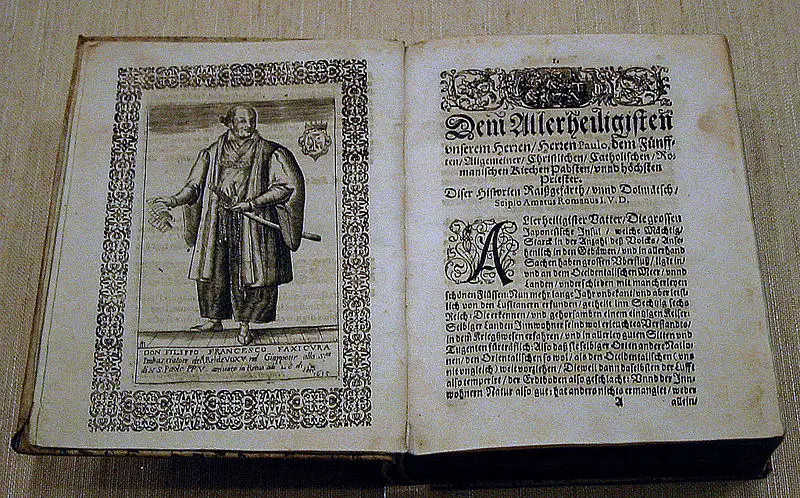 DON FILIPPO FRANCESCO FAXICURA
Imbasciatore del Re IDATE di VOXV nel Giappone alla S.tà
di N. S. Paolo PP. V. arrivato in Roma
1615
Dem Allerheiligisten
vnserem Herren / Herren Paulo, dem Fünff-
ten / Allgemeiner / Christlichen / Catholischen / Ro-
manischen Kirchen Pabsten / vnnd höchsten
Priester.
Diser Historien Raißgefärth / vnnd Dolmätsch /
Scipio Amatus Romanus I. V. D.
Allerheiligister Vatter / Die grossen
Japonesische Insul / welche Mächtig /
Starck in der Anzahl deß Volcks / Anse-
henlich in den Gebäwen / vnd in allerhand
Sachen haben grossen Vberfluß / ligt in /
vnd an dem Occidentalischen Meer / vnnd
Landen / vnderschieden mit mancherleyen
schönen Flüssen Nun mehr lange Jahr vnbekant / vnd aber letst-
lich von den Lusitenern erfunden / getheilt in Sechtzig sechs
Reich: Die erkennen / vnd gehorsamen einem eintzigen Keiser
Selbiger Landen Innwohner seind wol erleuchtes Verstandts /
in dem Kriegßwesen erfahren / vnd in aller jo guten Sitten vnd
Tugenten fürträflich: Also daß sie selbiger Orten andre Natio-
nen / den Orientalischen so wol / als den Occidentalischen (vns
nit vngleich) weit vorziehen / Die weil dann daselbsten der Lufft
also temperiret / der Erdboden also geschlacht: Vnnd der Inn-
wohnern Natur also gut: hat anders nichts ermanglet / weder
A allein /